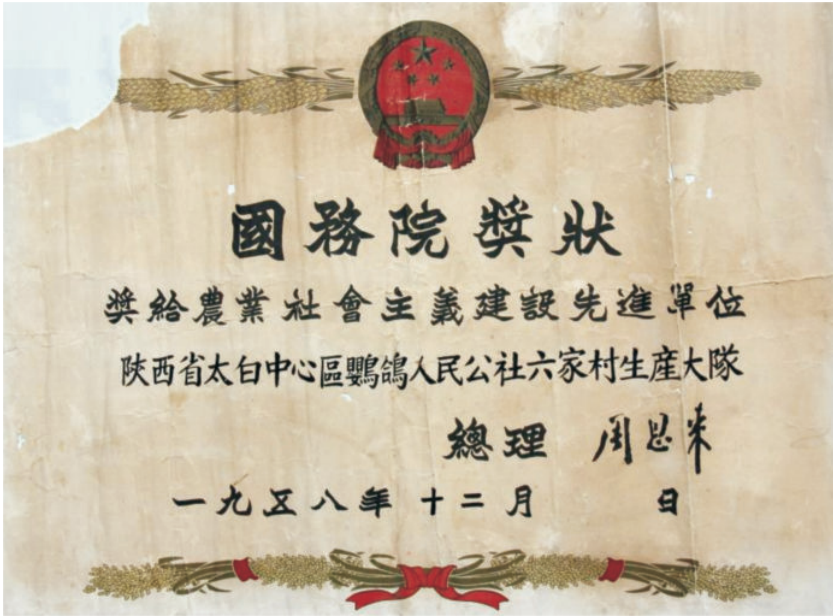 國務院獎狀
獎給農業社會主義建設先進單位
陝西省太白中心區鸚鴿人民公社六家村生産大隊
總理 周恩來
一九五八年十二月 日